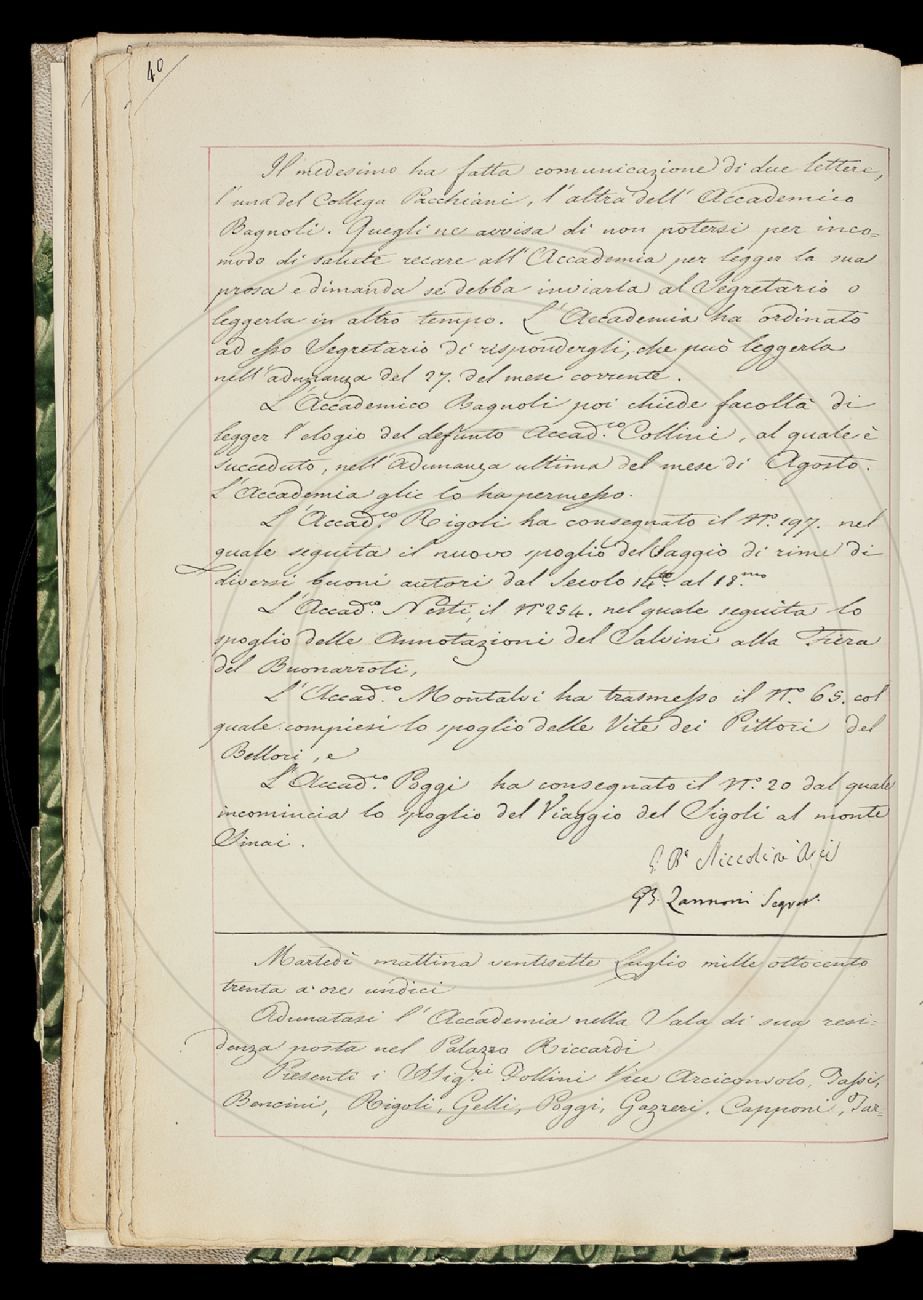 40
Il medesimo ha fatta comunicazione di due lettere,
l'una del Collega Pacchiani, l'altra dell'Accademico
Bagnoli. Quegli ne avvisa di non potersi per inco=
modo di salute recare all'Accademia per legger la sua
prosa e dimanda se debba inviarla al Segretario o
leggerla in altro tempo. L'Accademia ha ordinato
ad esso Segretario di rispondergli, che può leggerla
nell'adunanza del 27. del mese corrente.
L'Accademico Bagnoli poi chiede facoltà di
legger l'elogio del defunto Accad.co Collini, al quale è
succeduto, nell'Adunanza ultima del mese di Agosto.
L'Accademia glie lo ha permesso.
L'Accad.co Rigoli ha consegnato il N.o 197. nel
quale seguita il nuovo spoglio del Saggio di rime di
diversi buoni autori dal Secolo 14.to al 18.mo
L'Accad.co Nesti, il N.o 254. nel quale seguita lo
spoglio delle Annotazioni del Salvini alla Fiera
del Buonarroti,
L'Accad.co Montalvi ha trasmesso il N.o 65. col
quale compiesi lo spoglio delle Vite dei Pittori del
Bellori, e
L'Accad.co Poggi ha consegnato il N.o 20 dal quale
incomincia lo spoglio del Viaggio del Sigoli al monte
Sinai.
G. Ba Niccolini
GB. Zannoni Segret.
Martedì mattina ventisette Luglio mille ottocento
trenta a ore undici
Adunatasi l'Accademia nella Sala di sua resi=
denza posta nel Palazzo Riccardi
Presenti i SSig.ri Follini Vice Arciconsolo, Tassi,
Bencini, Rigoli, Gelli, Poggi, Gazzeri, Capponi, Tar=